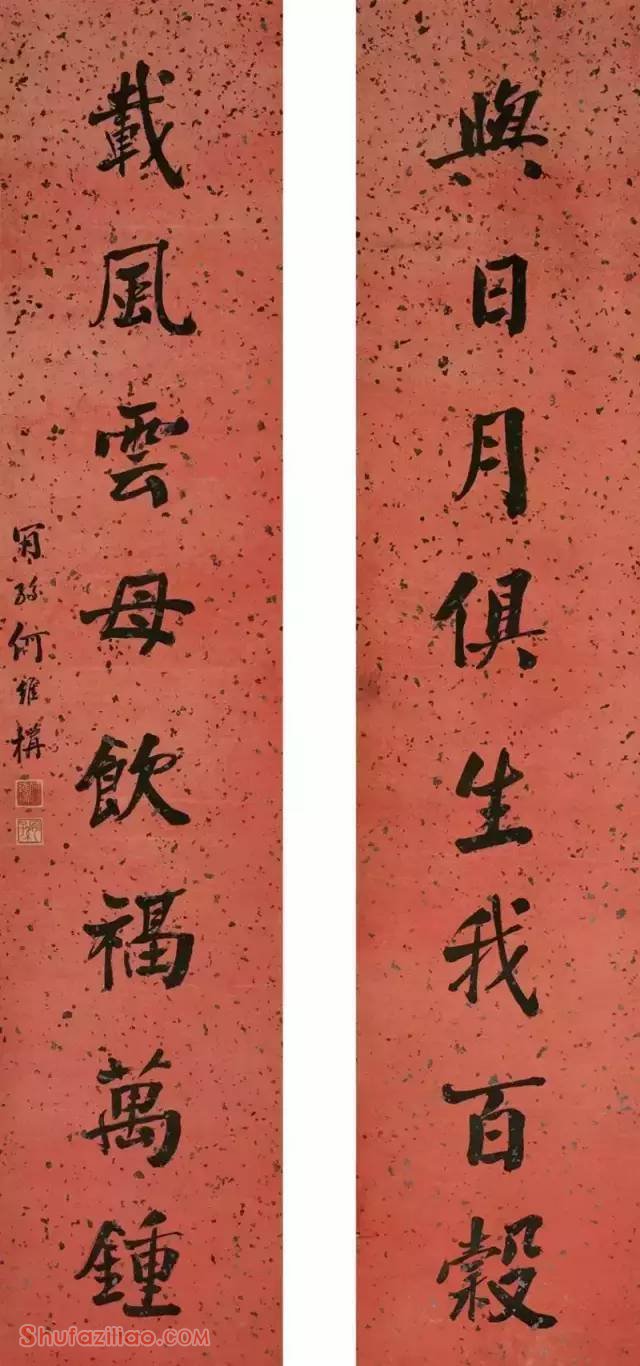 與日月俱生我百穀
載風雲母飲福萬鍾
何維構
Shufaziliao.com